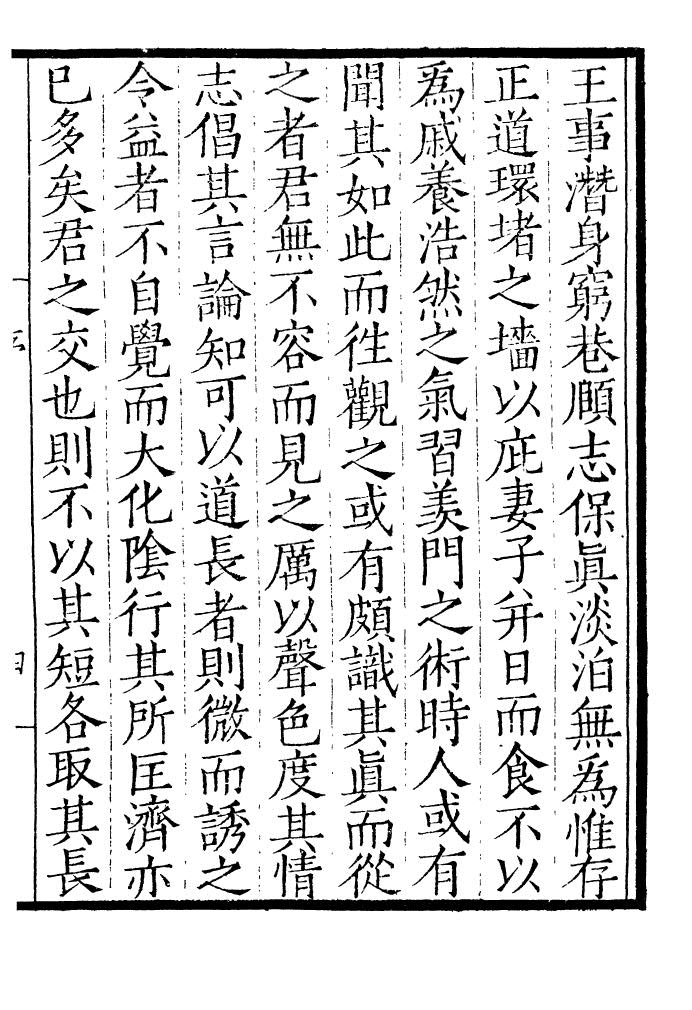 王事潛身窮巷願志保眞淡泊無爲惟存
正道環堵之墻以庇妻子并日而食不以
爲戚養浩然之氣習羨門之術時人或有
聞其如此而徃觀之或有頗識其眞而從
之者君無不容而見之厲以聲色度其情
志倡其言論知可以道長者則微而誘之
令益者不自覺而大化陰行其所匡濟亦
已多矣君之交也則不以其短各取其長